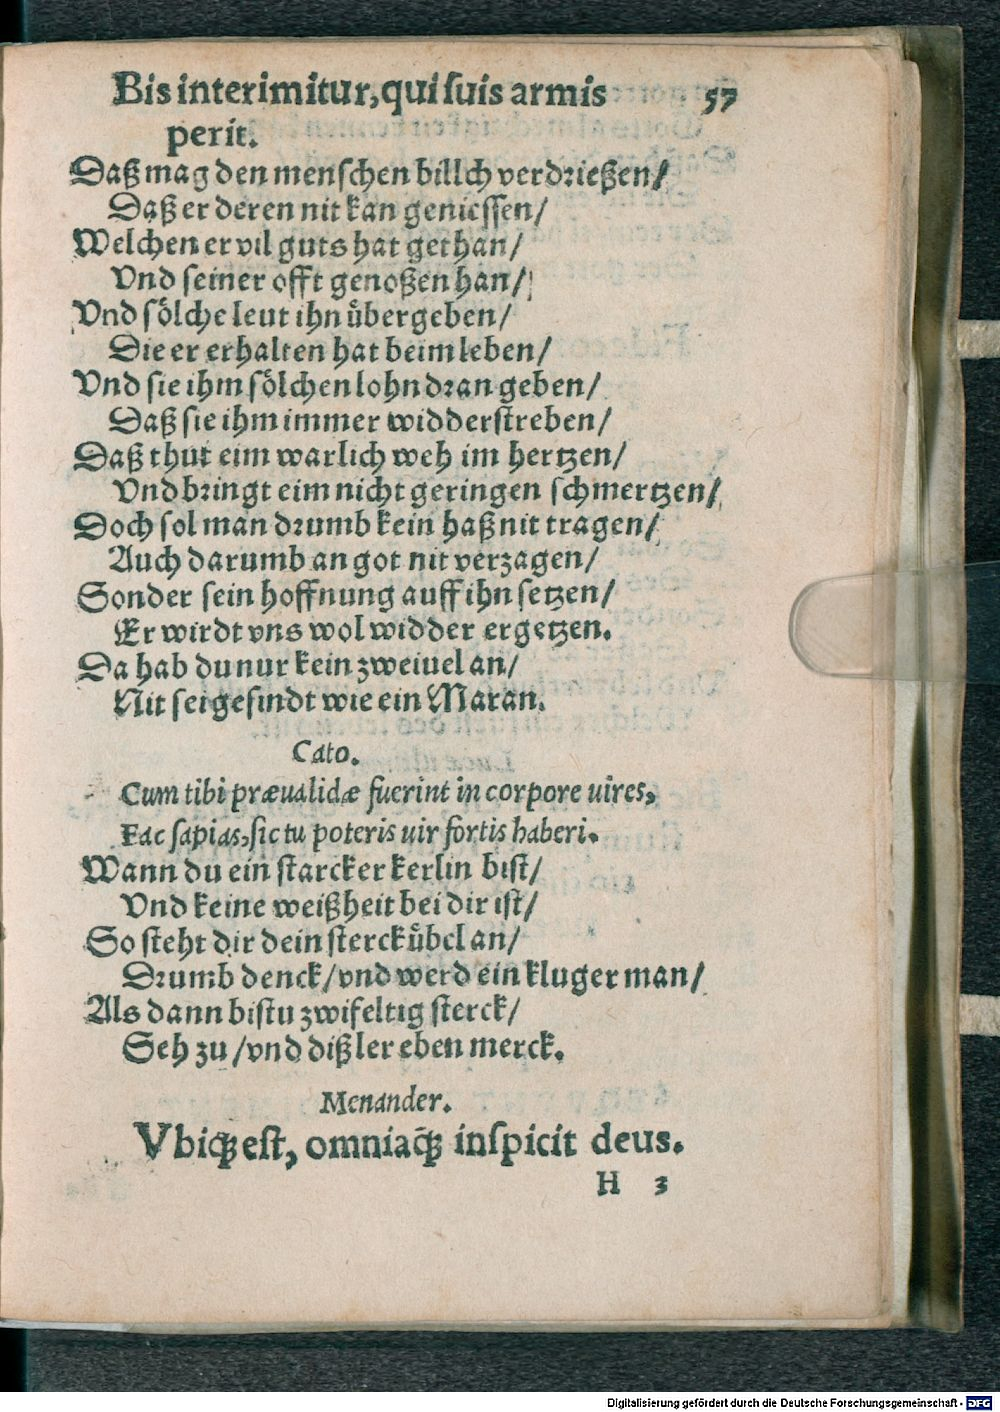 Bis interimitur, qui ſuis armis 57
perit.
Daß mag den menſchen billch verdrießen/
Daß er deren nit kan genieſſen/
Welchen er vil guts hat gethan/
Vnd ſeiner offt genoßen han/
Vnd ſoͤlche leut ihn uͤbergeben/
Die er erhalten hat beim leben/
Vnd sie ihm ſoͤlchen lohn dran geben/
Daß sie ihm immer widderſtreben/
Daß thut eim warlich weh im hertzen/
Vnd bringt eim nicht geringen ſchmertzen/
Doch ſol man drumb kein haß nit tragen/
Auch darumb an got nit verzagen/
Sonder ſein hoffnung auff ihn ſetzen/
Er wirdt vns wol widder ergetzen.
Da hab du nur kein zweiuel an/
Nit ſei geſindt wie ein Maran.
Cato.
Cum tibi præualidæ fuerint in corpore uires,
Fac ſapias, ſic tu poteris uir fortis haberi.
Wann du ein ſtarcker kerlin biſt/
Vnd keine weißheit bei dir iſt/
So ſteht dir dein ſterck uͤbel an/
Drumb denck/vnd werd ein kluger man/
Als dann biſtu zwifeltig ſterck/
Seh zu/vnd diß ler eben merck.
Menander.
Vbiqꝫ eſt, omniaq̃ꝫ inſpicit deus.
H 3
Digitalisierung gefördert durch die Deutsche Forschungsgemeinschaft - DFG